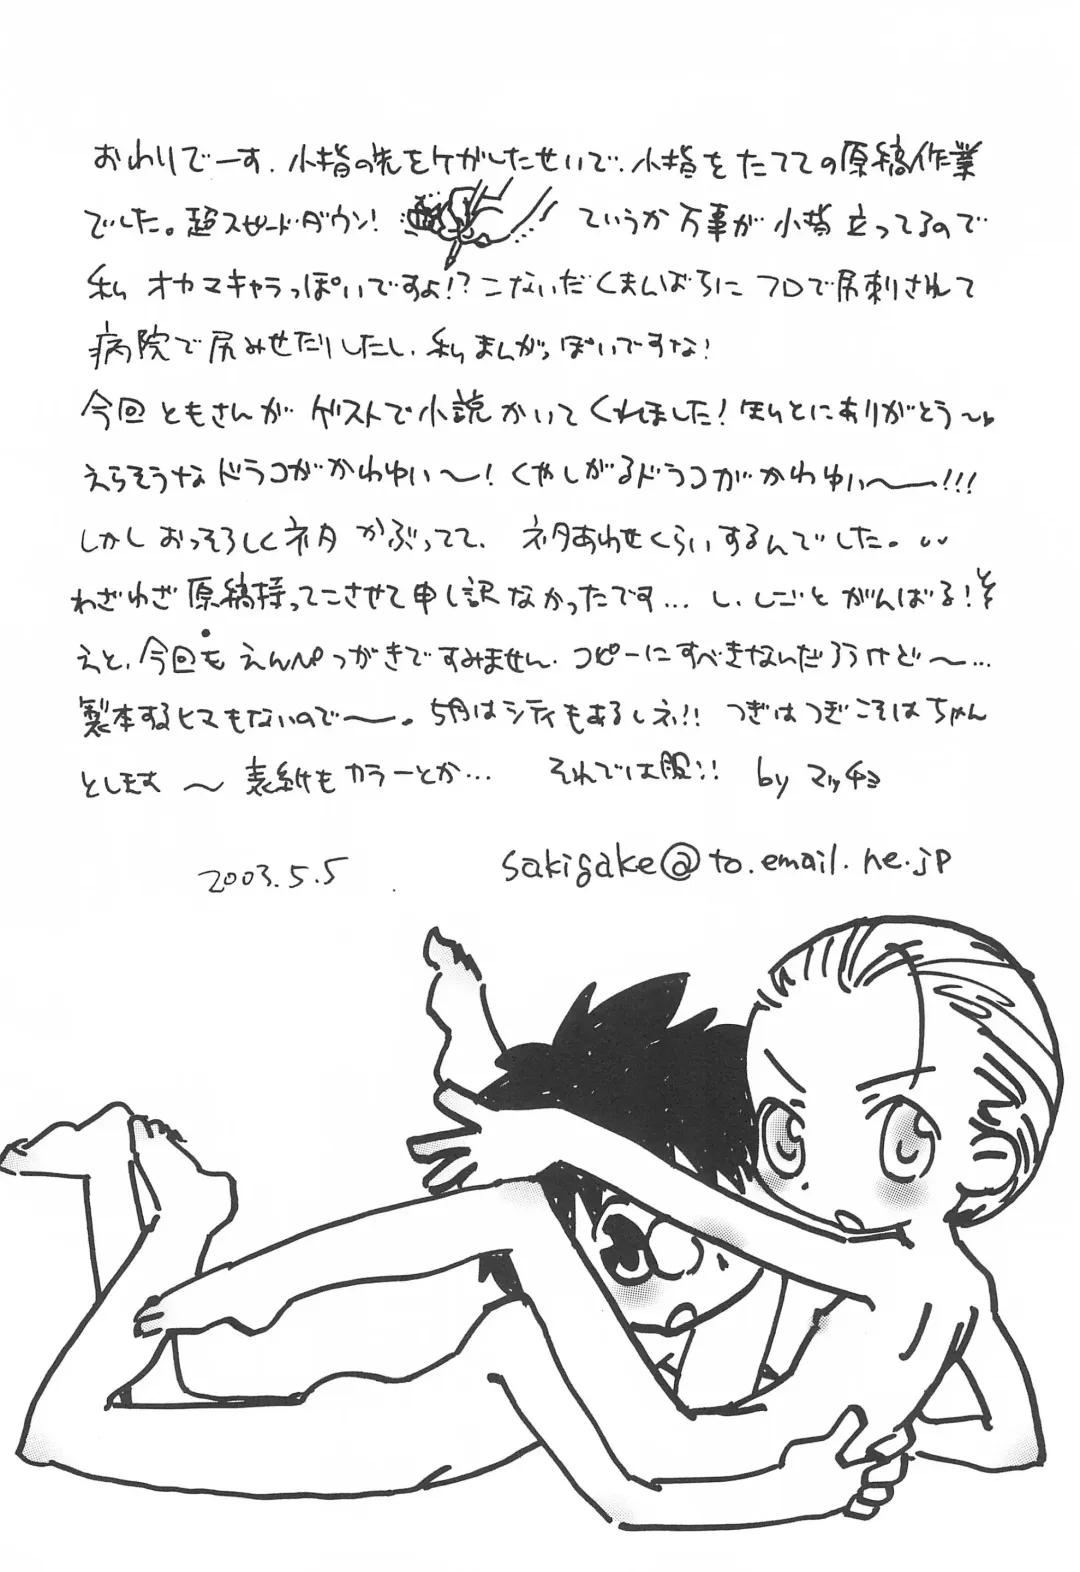 おわりでーす。小指の先をケガしたせいで、小指をたてての原稿作業
でした。超スピードダウン! ていうか万事が小指立ってるので
私オカマキャラっぽいですよ!? こないだくまんばちにフロで尻刺されて
病院で尻みせたりしたし、私まんがっぽいですな!
今回ともさんがゲストで小説かいてくれました!ほんとにありがとう〜♥
えらそうなドラコがかわゆい〜!くやしがるドラコがかわゆい〜!!!
しかしおっそろしくネタかぶってて、ネタあわせくらいするんでした。
わざわざ原稿持ってこさせて申し訳なかったです… し、しごとがんばる!
えと、今回もえんぴつがきですみません。コピーにすべきなんだろうけど〜…
製本するヒマもないので〜。5月はシティもあるしネ!! つぎはつぎこそはちゃん
とします〜 表紙もカラーとか… それでは服!! by マッチョ
2003.5.5 sakigake@to.email.ne.jp